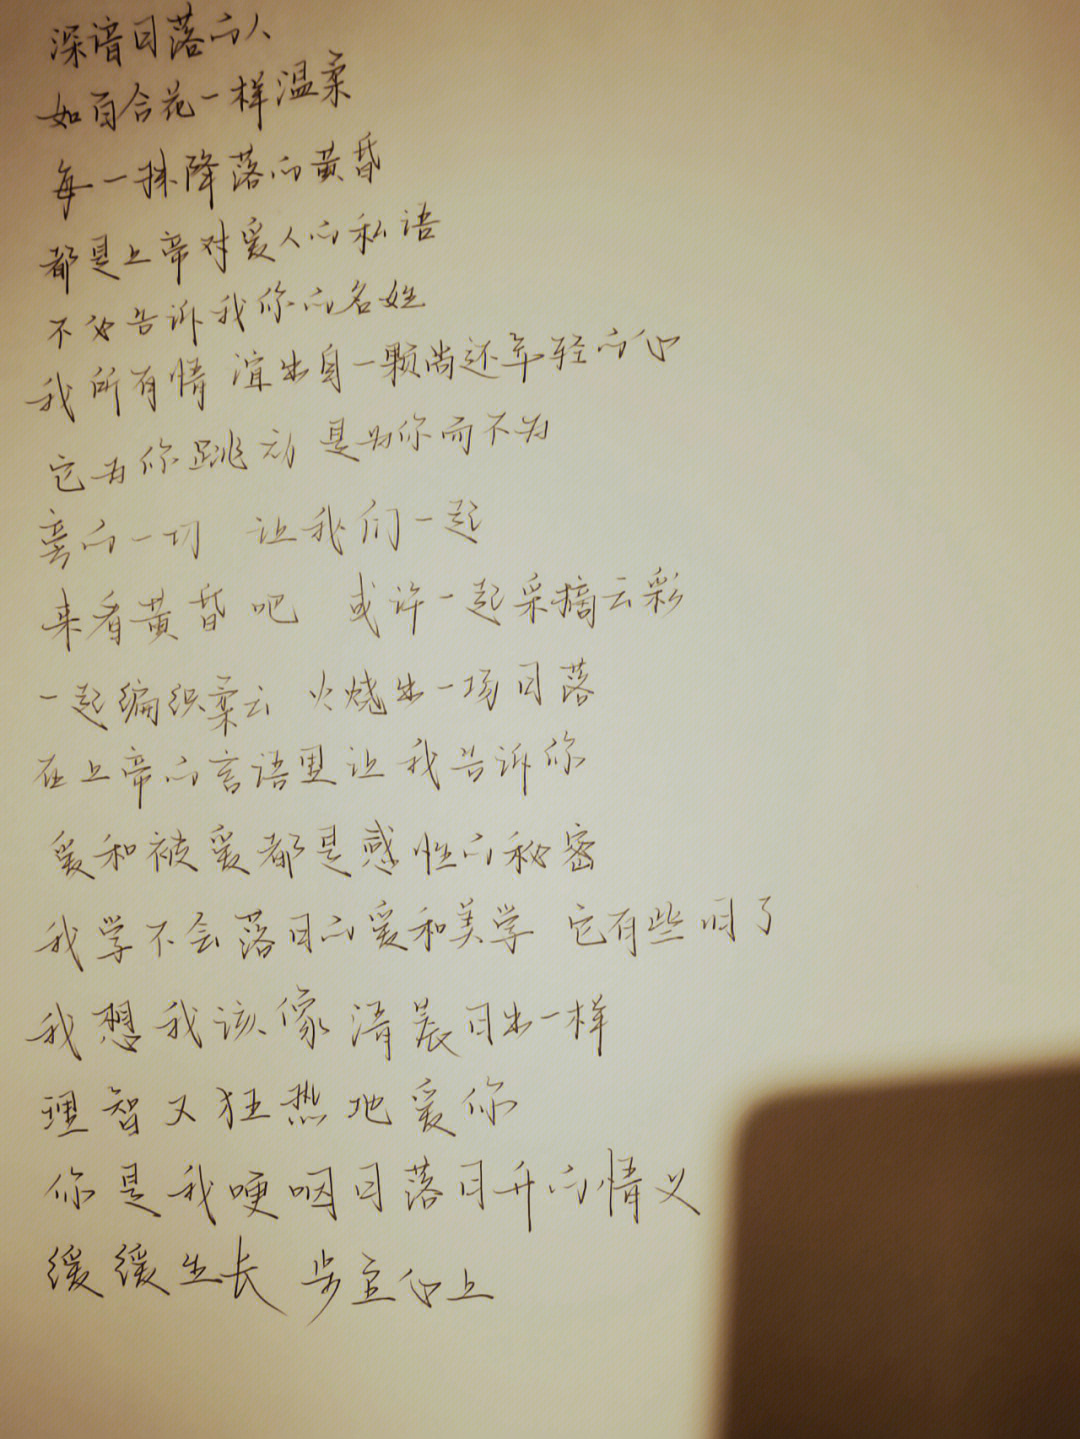 深谙日落的人
如百合花一样温柔
每一抹降落的黄昏
都是上帝对爱人的私语
不必告诉我你的名姓
我所有情谊出自一颗尚还年轻的心
它为你跳动 是为你而不为
旁的一切 让我们一起
来看黄昏吧 或许一起采摘云彩
一起编织柔云 火烧出一场日落
在上帝的言语里让我告诉你
爱和被爱都是感性的秘密
我学不会落日的爱和美学 它有些旧了
我想我该像清晨日出一样
理智又狂热地爱你
你是我哽咽日落日升的情义
缓缓生长 步至心上